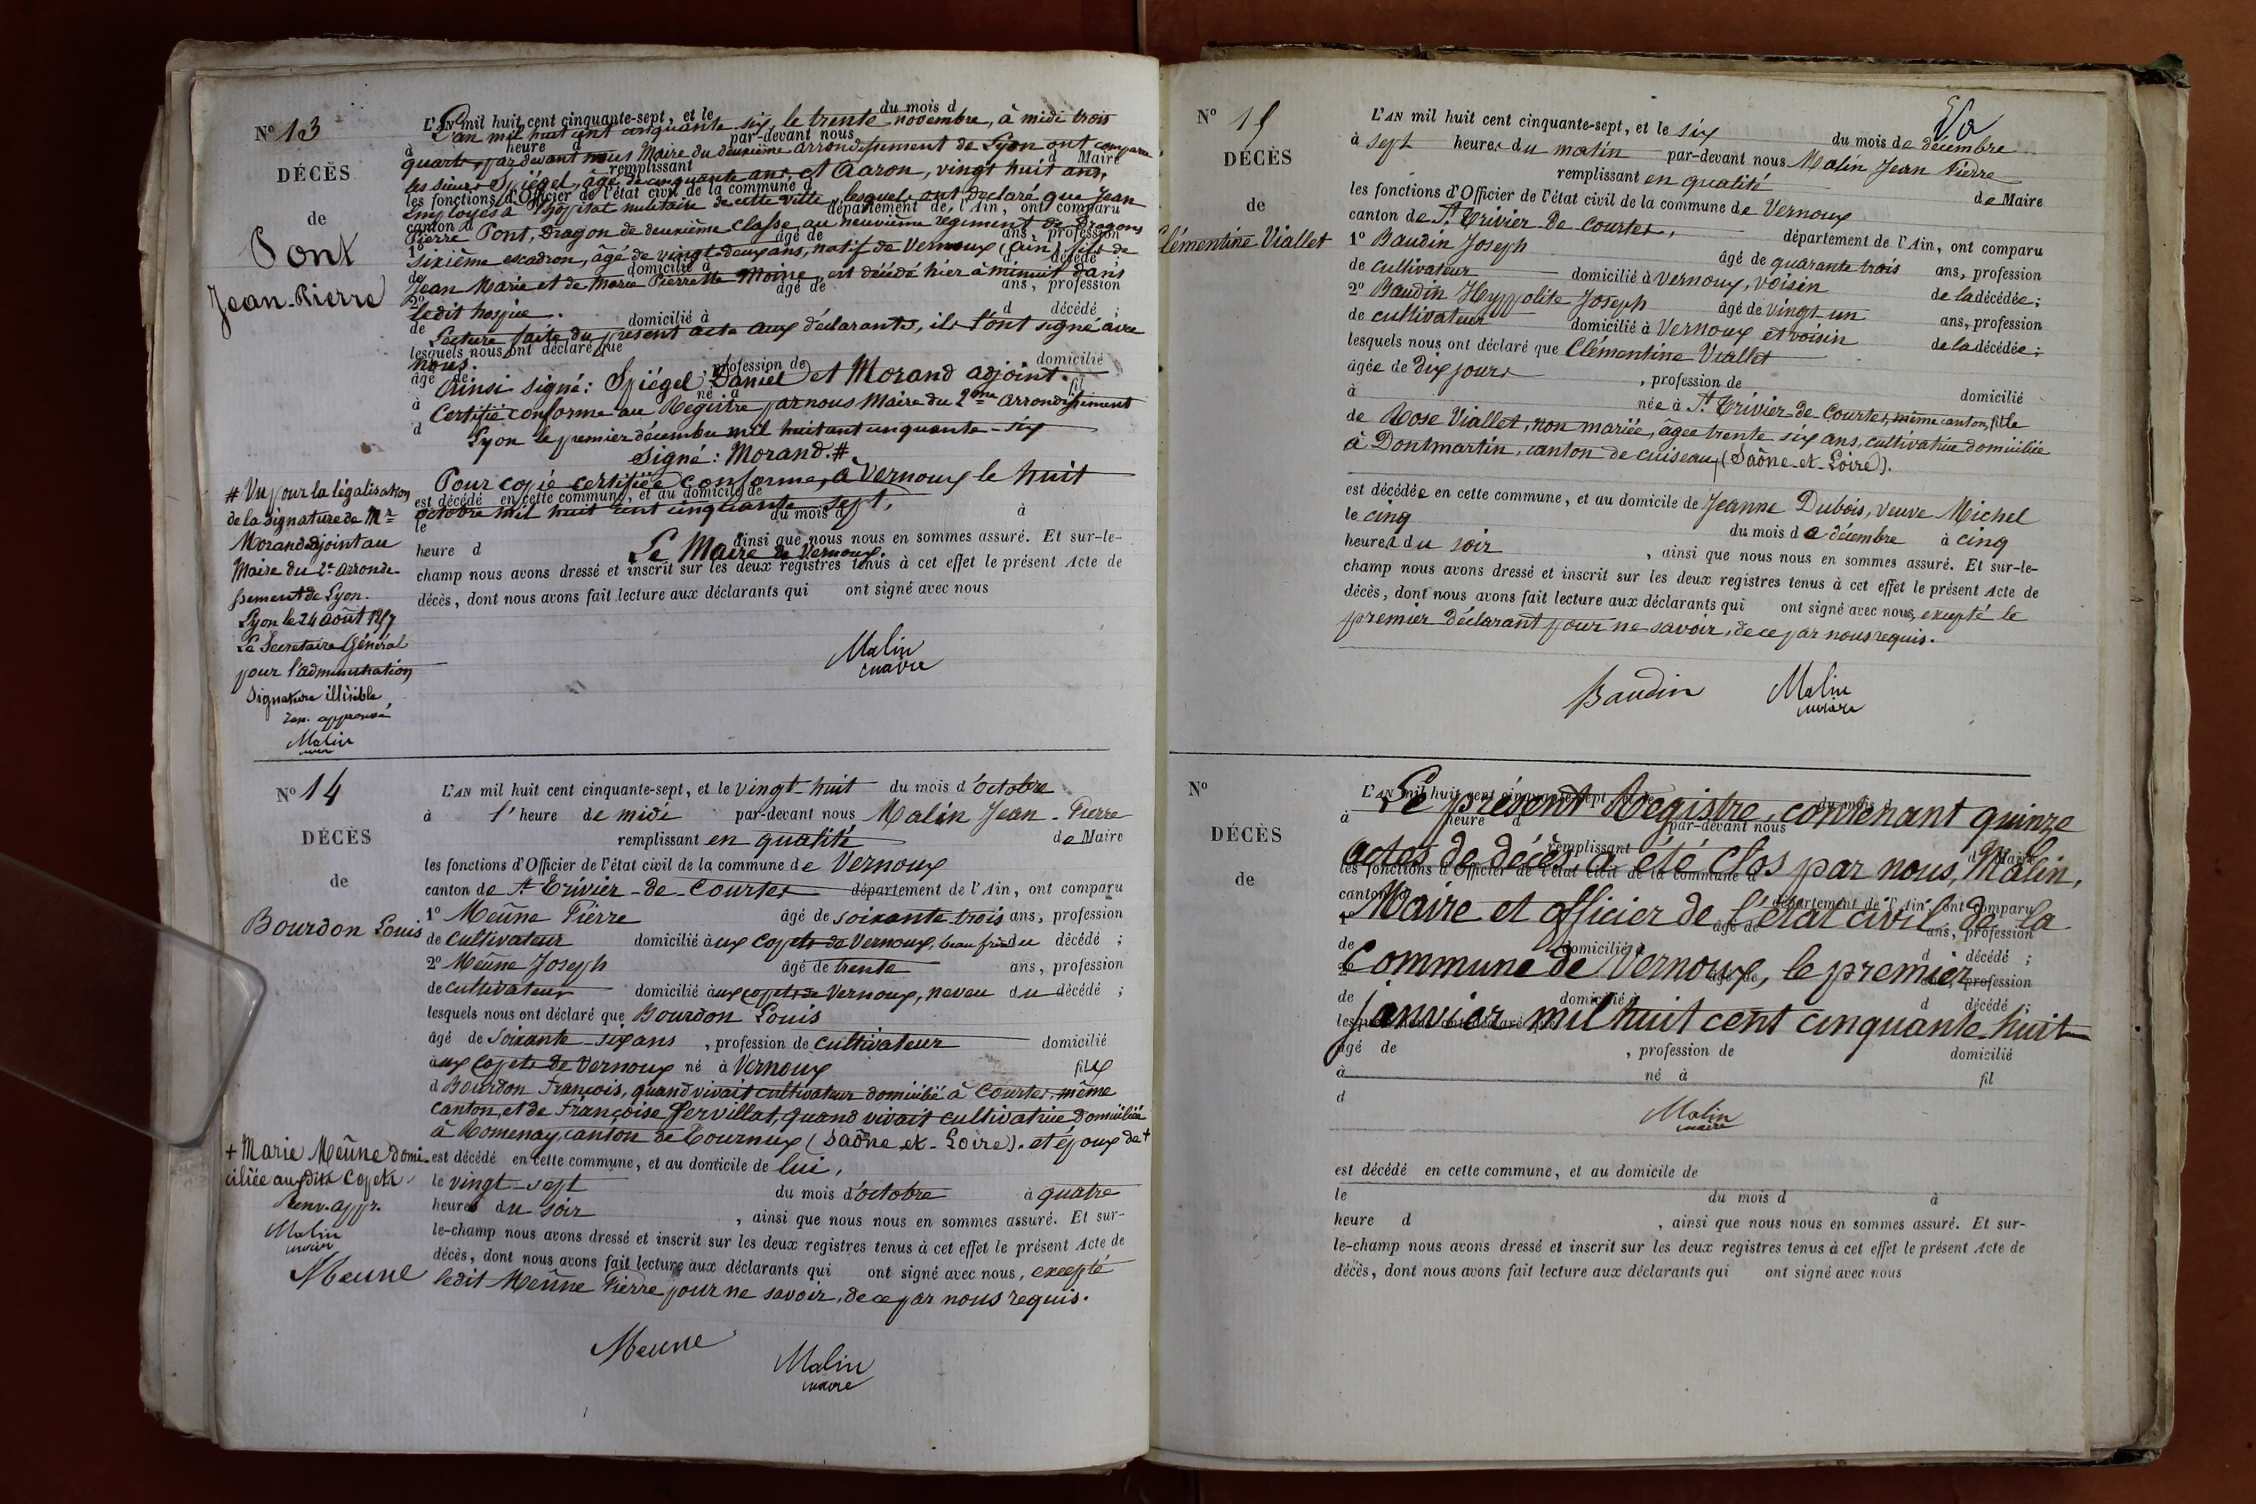 N° 13
DÉCÈS
de
Pont
Jean-Pierre
L'an mil huit cent cinquante six, le trente novembre, à midi trois
quarts, par devant nous Maire du deuxième arrondissement de Lyon ont comparu
les sieurs Spiégel, âgé de cinquante ans, et Aaron, vingt huit ans,
employés à l'hôpital militaire de cette ville, lesquels ont déclaré que Jean
Pierre Pont, Dragon de deuxième classe au neuvième régiment de Dragons
sixième escadron, âgé de vingt-deux ans, natif de Vernoux (Ain) fils de
Jean Marie et de Marie Pierrette Moine, est décédé hier à minuit dans
ledit hospice.
Lecture faite du présent acte aux déclarants, ils l'ont signé avec
nous.
Ainsi signé: Spiégel, Daniel et Morand adjoint.
Certifié conforme au Registre par nous Maire du 2me arrondissement
Lyon le premier décembre mil huit cent cinquante-six
Signé: Morand. #
Pour copie certifiée conforme, à Vernoux le huit
octobre mil huit cent cinquante sept,
Le Maire de Vernoux.
est décédé en cette commune, et au domicile de
le du mois d à
heure d ainsi que nous nous en sommes assuré. Et sur-le-
champ nous avons dressé et inscrit sur les deux registres tenus à cet effet le présent Acte de
décès, dont nous avons fait lecture aux déclarants qui ont signé avec nous
Malin
maire
# Vu pour la légalisation
de la signature de Mr
Morand adjoint au
Maire du 2e arrondis-
sement de Lyon.
Lyon le 24 août 1857
Le Secrétaire Général
pour l'administration
Signature illisible
Ren. approuvé
Malin
maire
N° 14
DÉCÈS
de
Bourdon Louis
L'AN mil huit cent cinquante-sept, et le vingt-huit du mois d'octobre
à l'heure de midi par-devant nous Malin Jean-Pierre
remplissant en qualité de Maire
les fonctions d'Officier de l'état civil de la commune de Vernoux
canton de St Trivier-de-Courtes département de l'Ain, ont comparu
1° Meûne Pierre âgé de soixante trois ans, profession
de cultivateur domicilié aux Copets de Vernoux, beau frère du décédé;
2° Meûne Joseph âgé de trente ans, profession
de cultivateur domicilié aux Copets de Vernoux, neveu du décédé;
lesquels nous ont déclaré que Bourdon Louis
âgé de soixante-six ans, profession de cultivateur domicilié
aux Copets de Vernoux né à Vernoux fils
d Bourdon François, quand vivait cultivateur domicilié à Courtes, même
canton, et de Françoise Servillat, quand vivait cultivatrice domiciliée
à Romenay, canton de Tournux (Saône-et-Loire). et époux de +
est décédé en cette commune, et au domicile de lui,
le vingt-sept du mois d'octobre à quatre
heures du soir, ainsi que nous nous en sommes assuré. Et sur-
le-champ nous avons dressé et inscrit sur les deux registres tenus à cet effet le présent Acte de
décès, dont nous avons fait lecture aux déclarants qui ont signé avec nous, excepté
ledit Meûne Pierre pour ne savoir, de ce par nous requis.
Meune
Malin
maire
+ Marie Meûne domi-
ciliée auxdits Copets
Renv. appr.
Malin
maire
Meune
N° 15
DÉCÈS
de
Clémentine Viallet
L'AN mil huit cent cinquante-sept, et le six du mois de décembre
à sept heures du matin par-devant nous Malin Jean Pierre
remplissant en qualité de Maire
les fonctions d'Officier de l'état civil de la commune de Vernoux
canton de St Trivier de Courtes, département de l'Ain, ont comparu
1° Baudin Joseph âgé de quarante trois ans, profession
de cultivateur domicilié à Vernoux, voisin de la décédée;
2° Baudin Hyppolite Joseph âgé de vingt un ans, profession
de cultivateur domicilié à Vernoux et voisin de la décédée;
lesquels nous ont déclaré que Clémentine Viallet
âgée de dix jours, profession de domicilié
à née à St Trivier-de-Courtes, même canton, fille
de Rose Viallet, non mariée, agée trente six ans, cultivatrice domiciliée
à Dontmartin, canton de Cuiseau (Saône-et-Loire).
est décédée en cette commune, et au domicile de Jeanne Dubois, veuve Michel
le cinq du mois de décembre à cinq
heures du soir, ainsi que nous nous en sommes assuré. Et sur-le-
champ nous avons dressé et inscrit sur les deux registres tenus à cet effet le présent Acte de
décès, dont nous avons fait lecture aux déclarants qui ont signé avec nous, excepté le
premier déclarant pour ne savoir, de ce par nous requis.
Baudin
Malin
maire
N°
DÉCÈS
de
Le présent Registre, contenant quinze
actes de décès, a été clos par nous, Malin,
Maire et officier de l'état civil de la
commune de Vernoux, le premier
janvier mil huit cent cinquante huit
âgé de , profession de domicilié
à né à fil
d
Malin
maire
est décédé en cette commune, et au domicile de
le du mois d à
heure d , ainsi que nous nous en sommes assuré. Et sur-
le-champ nous avons dressé et inscrit sur les deux registres tenus à cet effet le présent Acte de
décès, dont nous avons fait lecture aux déclarants qui ont signé avec nous